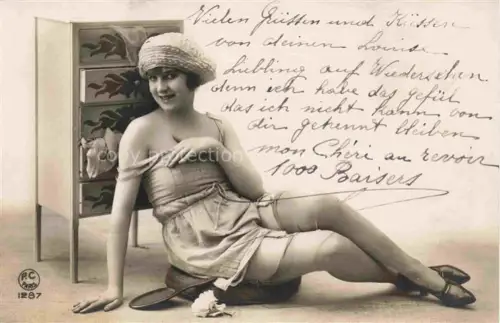 Vielen Grüssen und Küssen
von deinen Louise
Liebling auf Wiedersehen
denn ich habe das gefül
das ich nicht kann von
dir getrennt bleiben
mon Chéri au revoir
1000 Barsers
copy protection
P.C
Paris
1287